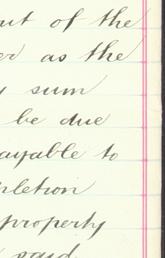 out of the
er as the
y sum
be due
ayable to
pletion
property
said